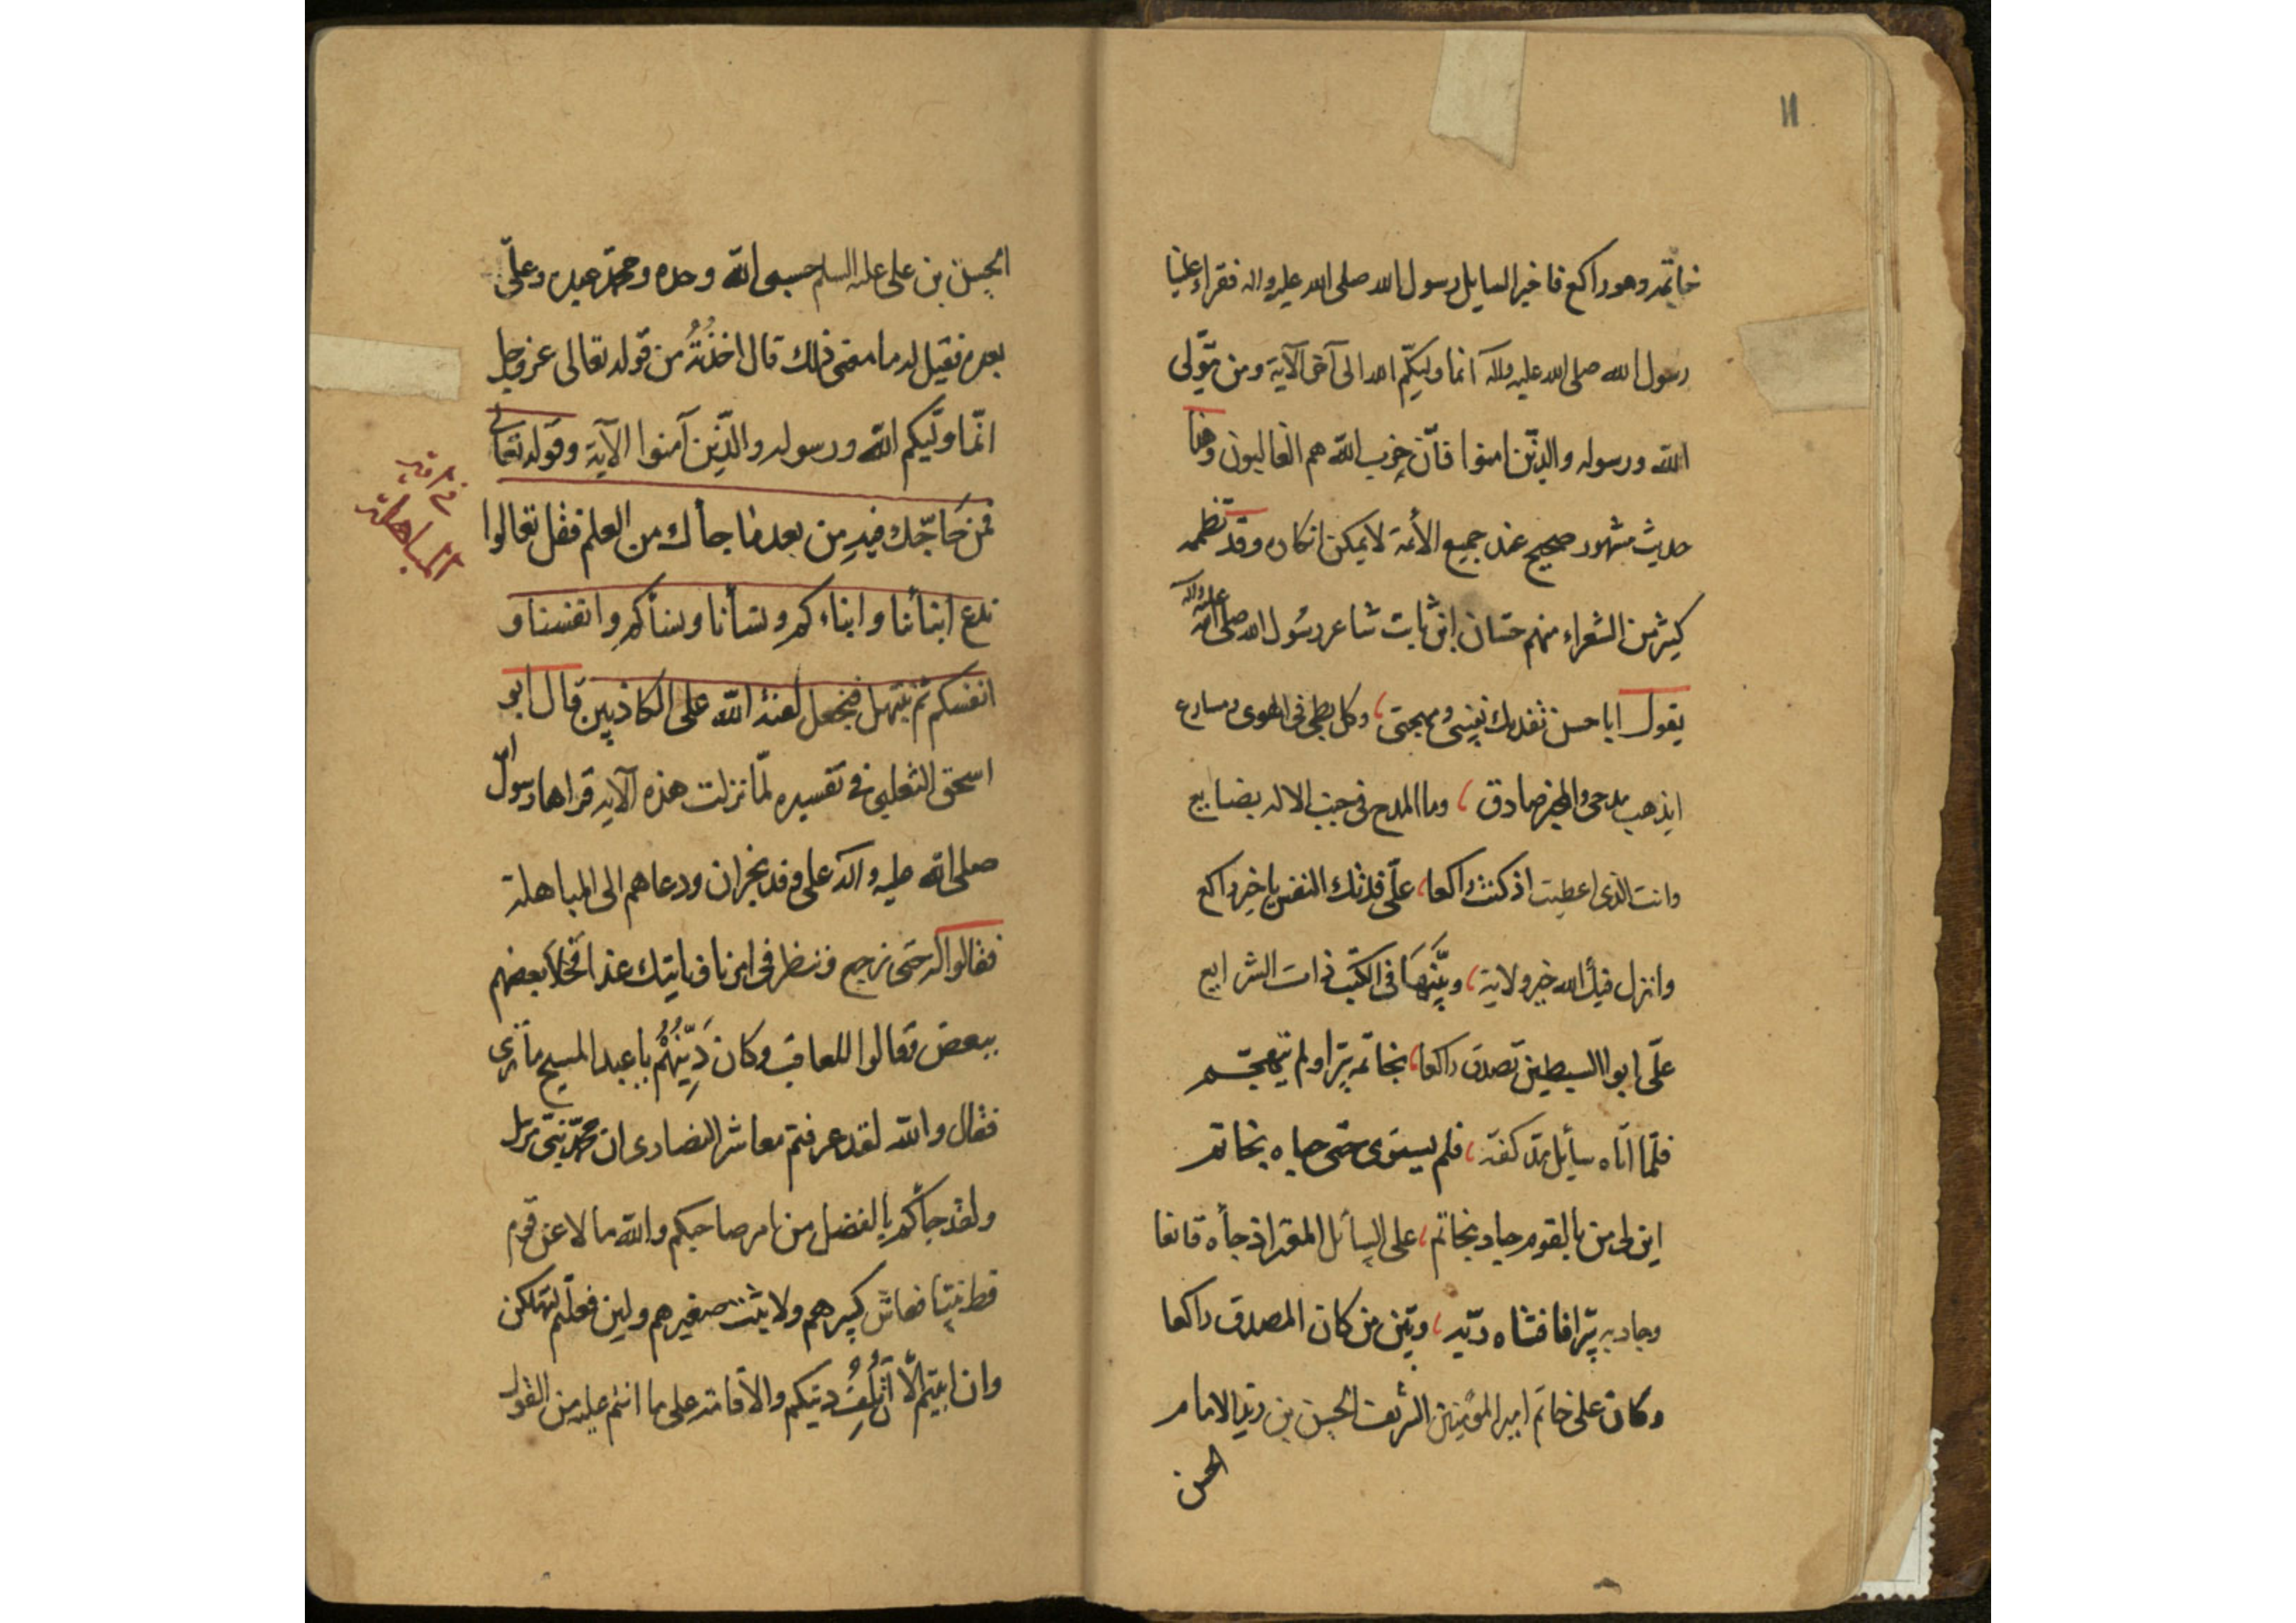 ١١
خاتمه وهو راكع فاخبر السايل رسول الله صلى الله عليه واله فقراء علينا
رسول الله صلى الله عليه وآله انما وليكم الله الى آخر الآية ومن يتولى
الله ورسوله والذين امنوا فان حزب الله هم الغالبون وهذا
حديث مشهور صحيح عند جميع الأمة لا يمكن انكاره وقد نظمه
كثير من الشعراء منهم حسان ابن ثابت شاعر رسول الله صلى الله عليه وآله
يقول ابا حسن تفديك نفسي ومهجتي، وكل بطي في الهوى ومسارع
ايذهب مدحي والمحبر صادق، وما المدح في جنب الاله بضايع
وانت الذي اعطيت اذ كنت راكعا، علي فدتك النفس يا خير راكع
وانزل فيك الله خير ولاية، وبينها في الكتب ذات الشرايع
علي ابوا السبطين تصدق راكعا، بخاتمه سرا ولم يتهجم
فلما اتاه سأيل مد كفه، فلم يستوى حتى حباه بخاتم
اين لى من بالقوم جاد بخاتم، على السأئل المعتر اذ جأه قانعا
وجاد به سرا فافشاه ربه، وبين من كان المصدق راكعا
وكان على خاتم امير المؤمنين الشريف الحسن بن زيد الامام
الحسن
الحسن بن علي عليه السلم حسبي الله وحده ومحمد عبده وعلي
بعده فقيل له ما معنى ذلك قال اخذته من قوله تعالى عز وجل
انما وليكم الله ورسوله والذين آمنوا الآية وقوله تعالى
فمن حاجك فيه من بعد ما جأك من العلم فقل تعالوا
المباهلة
ندع ابنأنا وابناءكم ونسأنا ونسأكم وانفسنا و
انفسكم ثم نبتهل فنجعل لعنة الله على الكاذبين قال ابو
اسحق الثعلبي في تفسيره لما نزلت هذه الآية قراها رسول الله
صلى الله عليه وآله على وفد نجران ودعاهم الى المباهلة
فقالوا له حتى نرجع وننظر في امرنا فناتيك غدا فخلا بعضهم
ببعض فقالوا للعاقب وكان ديّنهم يا عبد المسيح ما ترى
فقال والله لقد عرفتم معاشر النصارى ان محمد نبي مرسل
ولقد جأكم بالفضل من امر صاحبكم والله ما لاعن قوم
قط نبيا فعاش كبيرهم ولا ينبت صغيرهم ولين فعلتم لتهلكن
وان ابيتم الا دينكم والاقامة على ما انتم عليه من القول